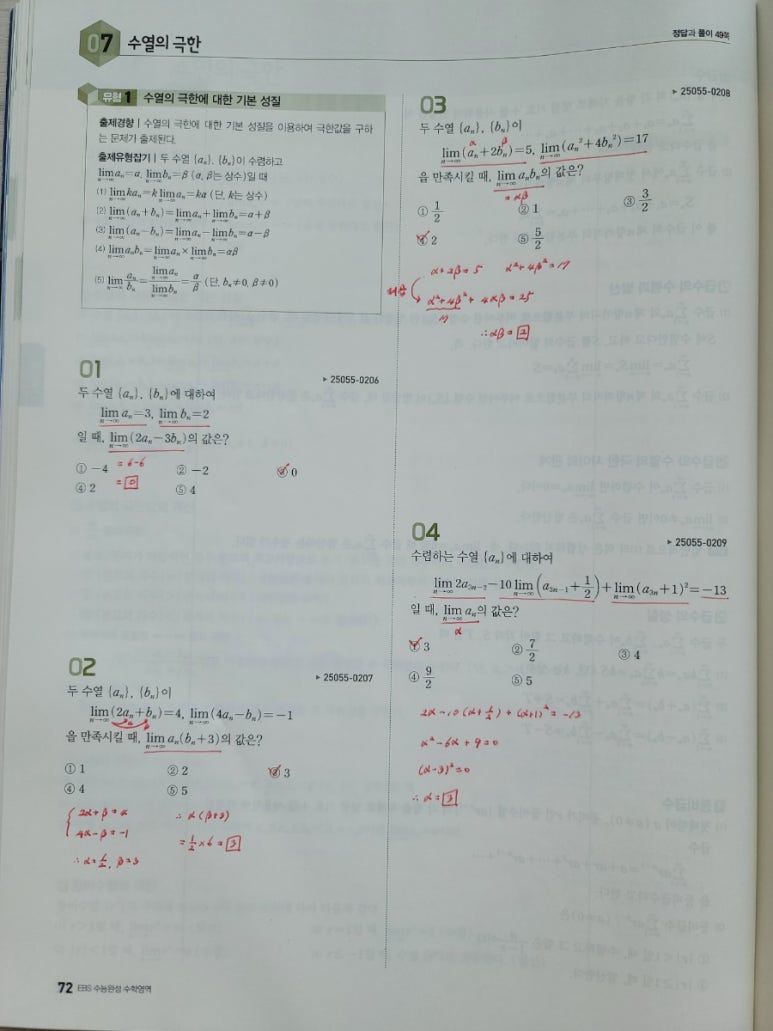 07 수열의 극한
정답과 풀이 49쪽
유형 1 수열의 극한에 대한 기본 성질
출제경향 | 수열의 극한에 대한 기본 성질을 이용하여 극한값을 구하
는 문제가 출제된다.
출제유형잡기 | 두 수열 {aₙ}, {bₙ}이 수렴하고
lim(n→∞) aₙ=α, lim(n→∞) bₙ=β (α, β는 상수)일 때
(1) lim(n→∞) kaₙ=k lim(n→∞) aₙ=kα (단, k는 상수)
(2) lim(n→∞) (aₙ+bₙ)=lim(n→∞) aₙ+lim(n→∞) bₙ=α+β
(3) lim(n→∞) (aₙ-bₙ)=lim(n→∞) aₙ-lim(n→∞) bₙ=α-β
(4) lim(n→∞) aₙbₙ=lim(n→∞) aₙ×lim(n→∞) bₙ=αβ
(5) lim(n→∞) aₙ/bₙ=lim(n→∞) aₙ/lim(n→∞) bₙ=α/β (단, bₙ≠0, β≠0)
01
▶ 25055-0206
두 수열 {aₙ}, {bₙ}에 대하여
lim(n→∞) aₙ=3, lim(n→∞) bₙ=2
일 때, lim(n→∞) (2aₙ-3bₙ)의 값은?
= 6-6
= 0
① -4 ② -2 ③ 0
④ 2 ⑤ 4
02
▶ 25055-0207
두 수열 {aₙ}, {bₙ}이
lim(n→∞) (2aₙ+bₙ)=4, lim(n→∞) (4aₙ-bₙ)=-1
을 만족시킬 때, lim(n→∞) aₙ(bₙ+3)의 값은?
① 1 ② 2 ③ 3
④ 4 ⑤ 5
2α+β=4
4α-β=-1
∴ α=1/2, β=3
∴ α(β+3)
= 1/2 × 6 = 3
72 EBS 수능완성 수학영역
03
▶ 25055-0208
두 수열 {aₙ}, {bₙ}이
α β
lim(n→∞) (aₙ+2bₙ)=5, lim(n→∞) (aₙ²+4bₙ²)=17
을 만족시킬 때, lim(n→∞) aₙbₙ의 값은?
= αβ
① 1/2 ② 1 ③ 3/2
④ 2 ⑤ 5/2
α+2β=5 α²+4β²=17
제곱
α²+4β²+4αβ=25
17
∴ αβ=2
04
▶ 25055-0209
수렴하는 수열 {aₙ}에 대하여
lim(n→∞) 2a₃ₙ₋₂-10 lim(n→∞) (a₃ₙ₋₁+1/2)+lim(n→∞) (a₃ₙ+1)²=-13
일 때, lim(n→∞) aₙ의 값은?
α
① 3 ② 7/2 ③ 4
④ 9/2 ⑤ 5
2α-10(α+1/2)+(α+1)²=-13
α²-6α+9=0
(α-3)²=0
∴ α=3